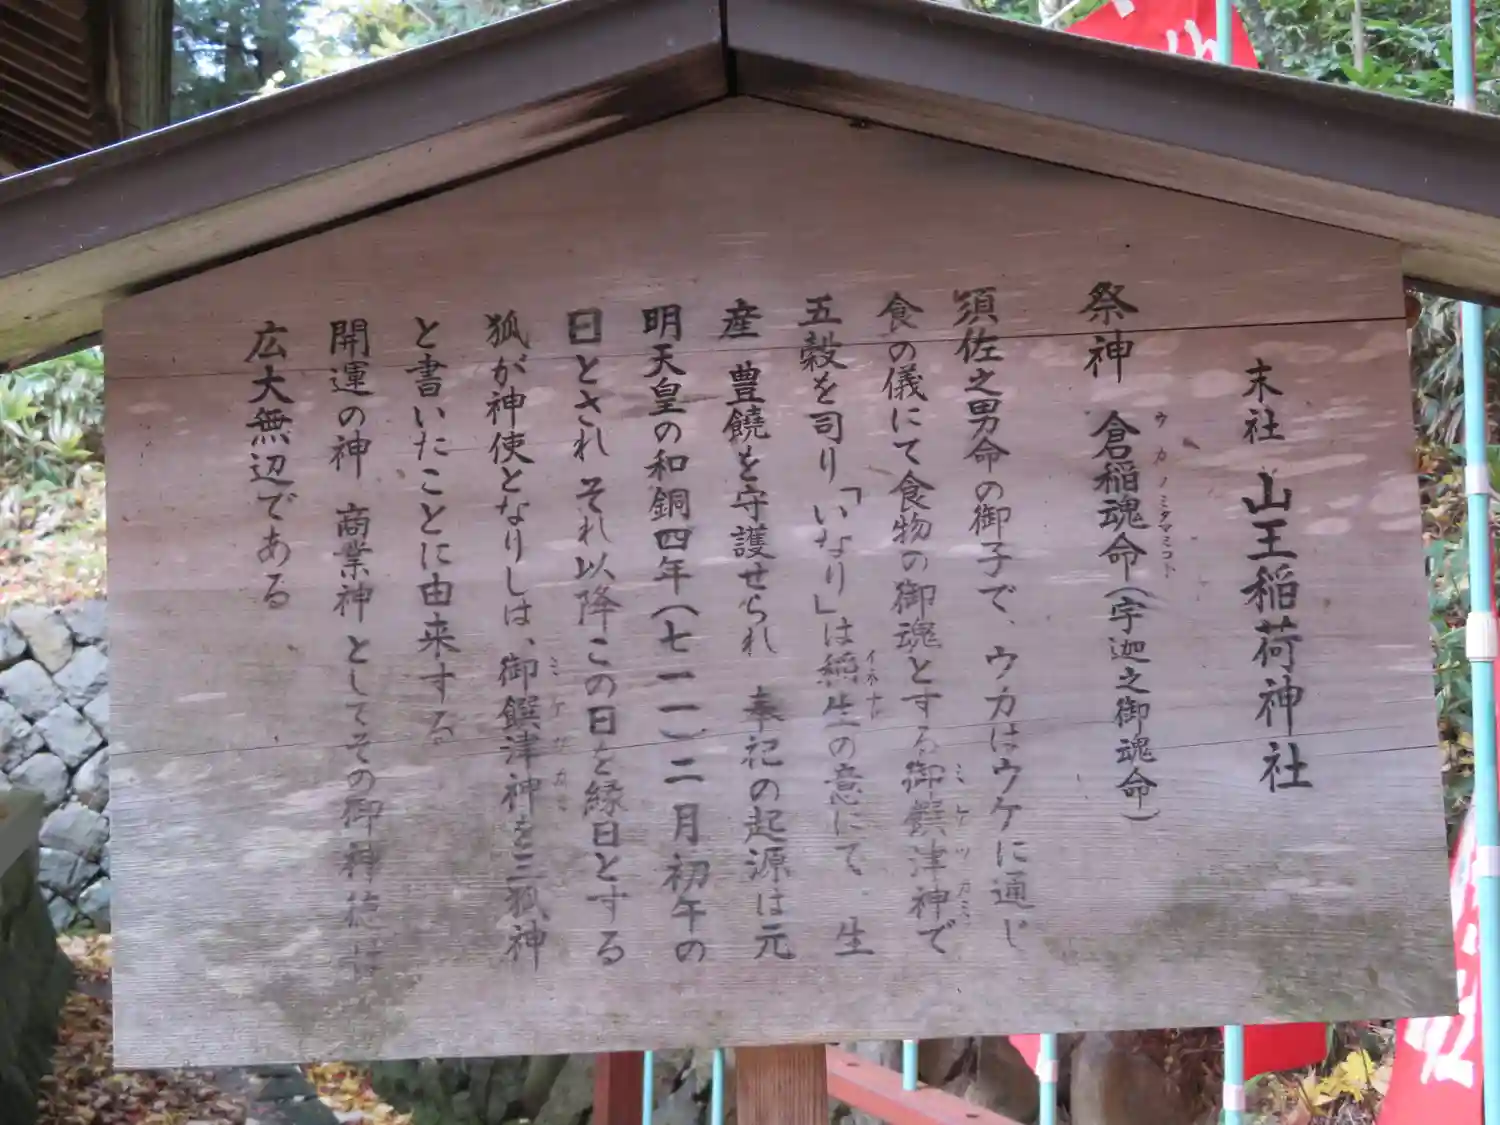 末社 山王稲荷神社
祭神 倉稲魂命(宇迦之御魂命)
ウカノミタマミコト
須佐之男命の御子で、ウカはウケに通じ
食の儀にて食物の御魂とする御饌津神で
ミケツカミ
五穀を司り「いなり」は稲生の意にて、生
イネナリ
産 豊饒を守護せられ 奉祀の起源は元
明天皇の和銅四年(七一一)二月初午の
日とされ それ以降この日を縁日とする
狐が神使となりしは、御饌津神を三狐神
ミケツカミ
と書いたことに由来する。
開運の神 商業神としてその御神徳は
広大無辺である